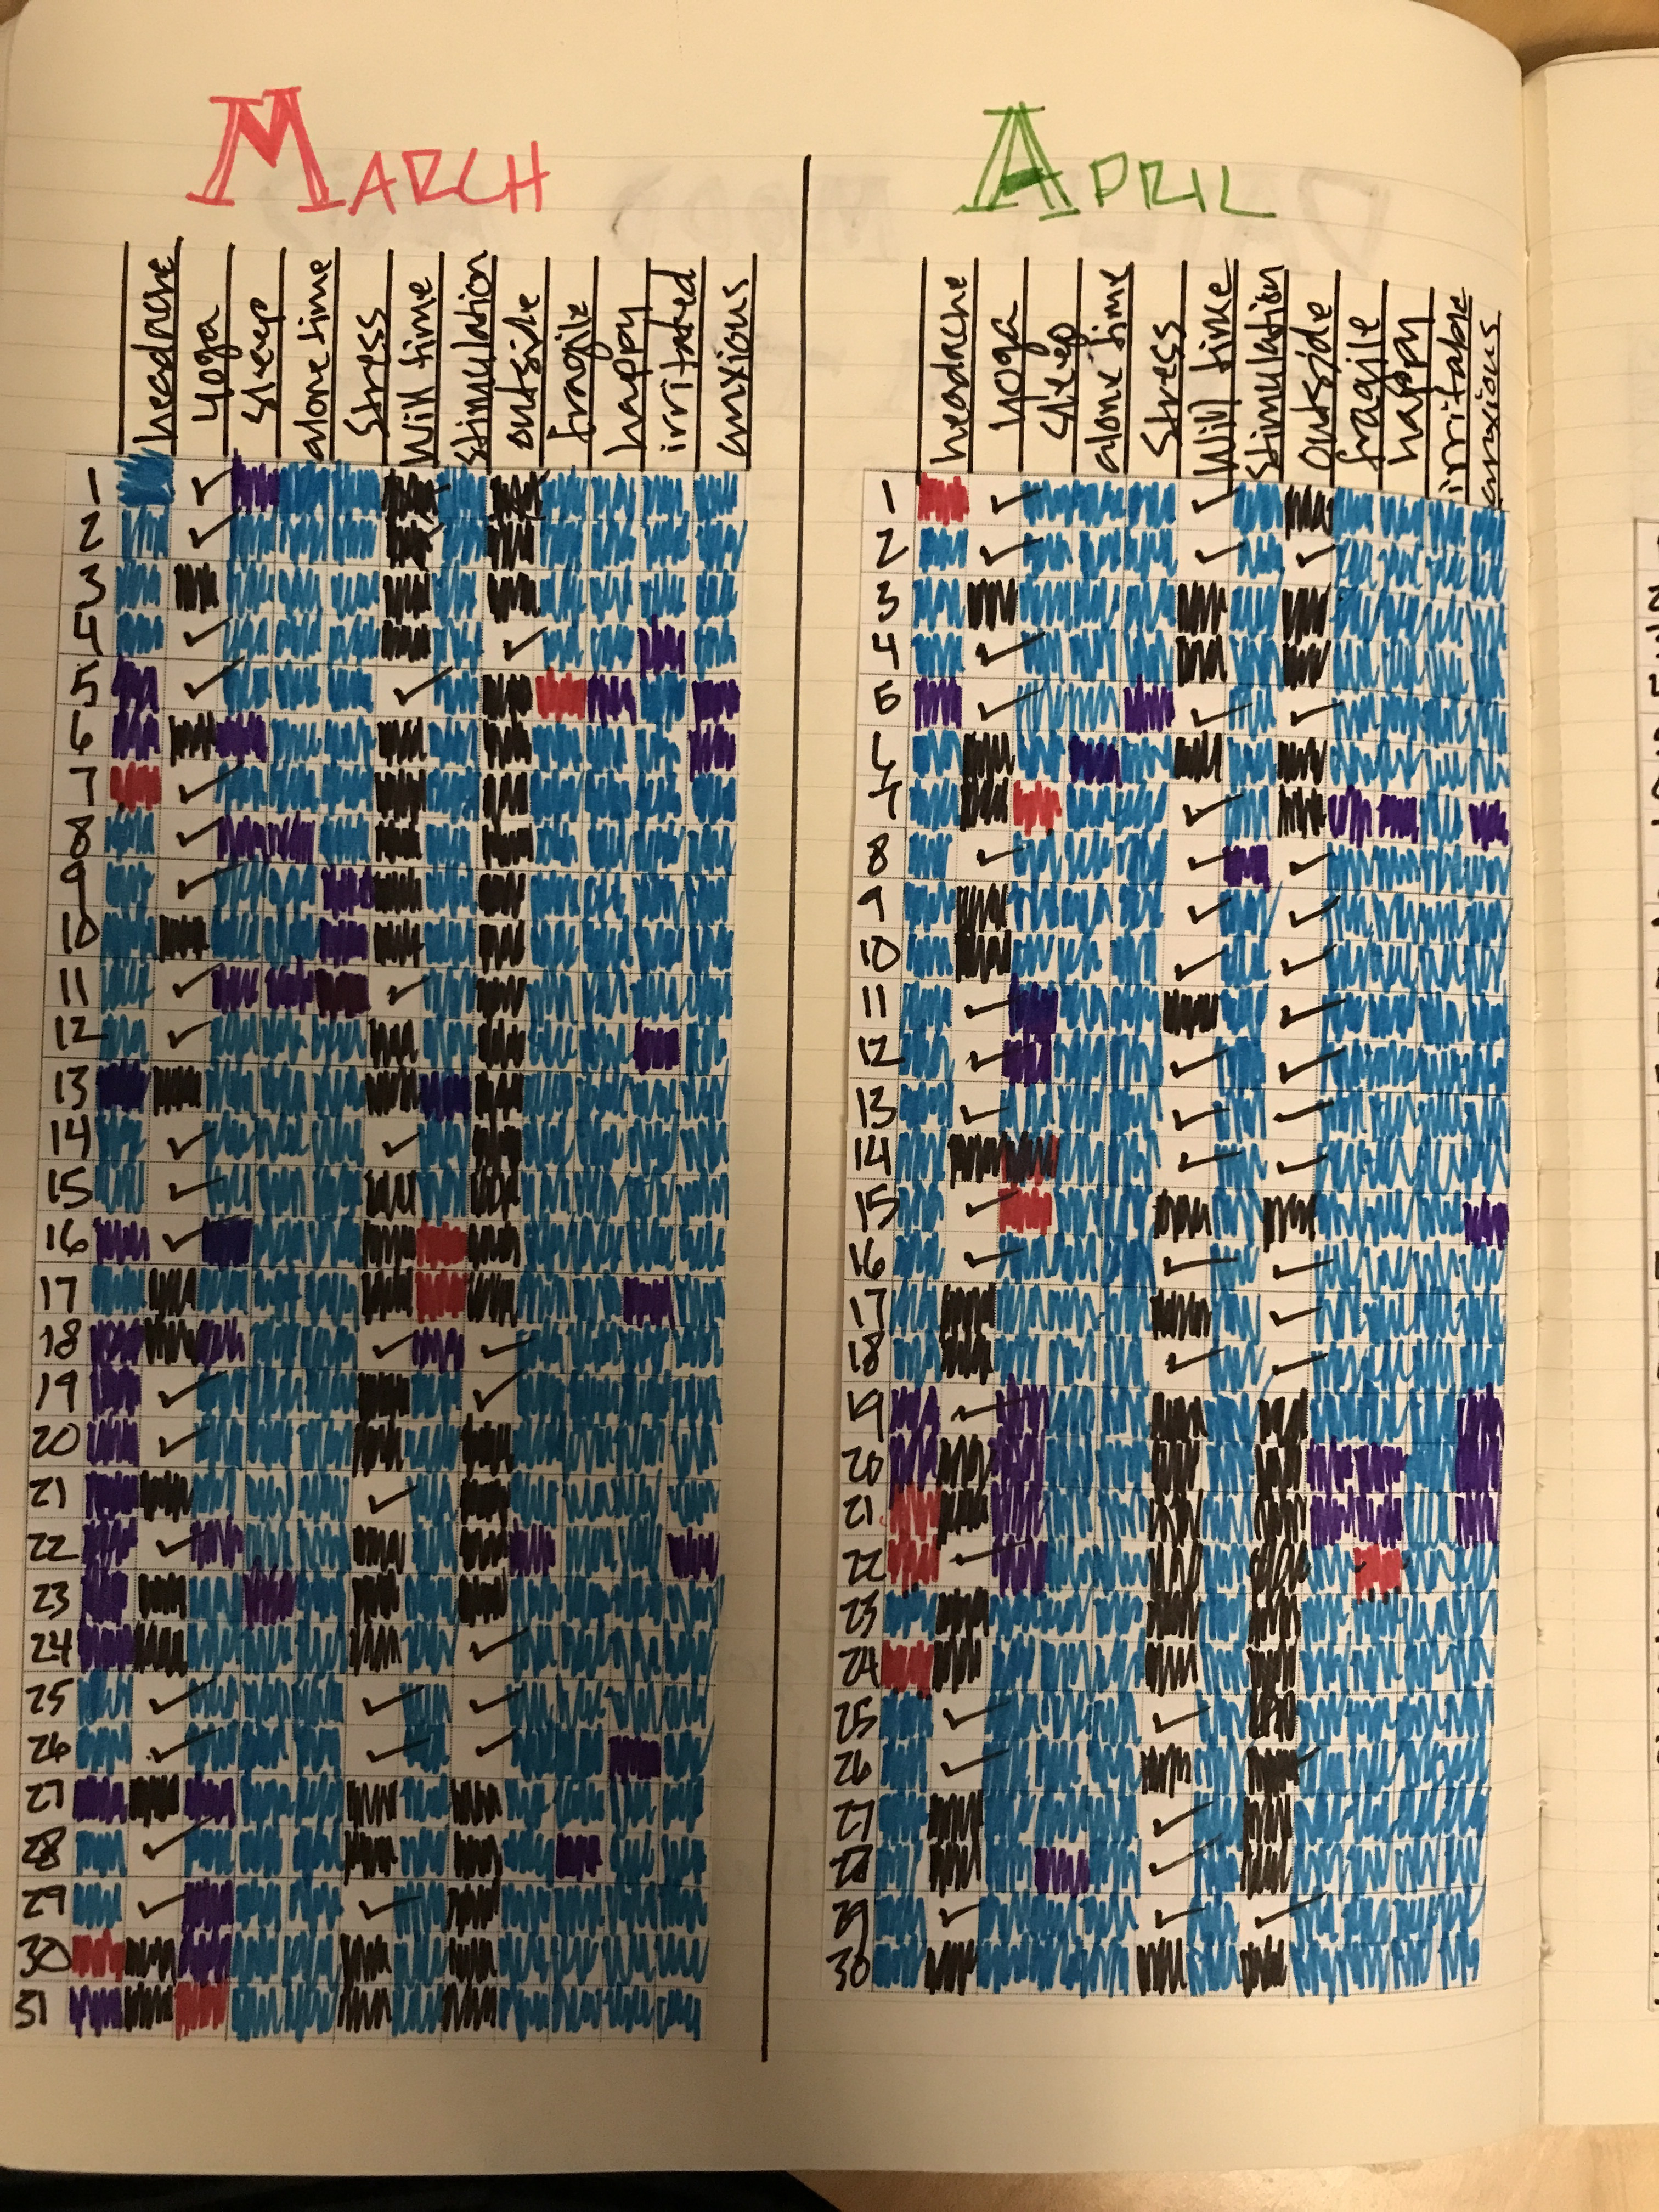 MARCH
headache yoga sleep alone time stress Will time stimulation outside fragile happy irritated anxious
1 ✓
2 ✓
3
4 ✓ ✓
5 ✓ ✓
6
7 ✓
8 ✓
9 ✓
10
11 ✓ ✓
12 ✓
13
14 ✓ ✓
15 ✓
16 ✓
17
18 ✓ ✓
19 ✓ ✓
20 ✓
21 ✓
22 ✓
23
24 ✓
25 ✓ ✓ ✓
26 ✓ ✓ ✓
27
28 ✓
29 ✓ ✓
30
31
APRIL
headache yoga sleep alone time stress Will time stimulation outside fragile happy irritable anxious
1 ✓ ✓
2 ✓ ✓ ✓
3
4 ✓
5 ✓ ✓ ✓
6
7 ✓
8 ✓ ✓ ✓
9 ✓ ✓
10 ✓ ✓
11 ✓ ✓
12 ✓ ✓ ✓
13 ✓ ✓ ✓
14 ✓ ✓
15 ✓
16 ✓ ✓ ✓
17 ✓
18 ✓ ✓
19 ✓
20
21
22 ✓
23
24
25 ✓ ✓
26 ✓
27 ✓
28 ✓
29 ✓ ✓ ✓
30